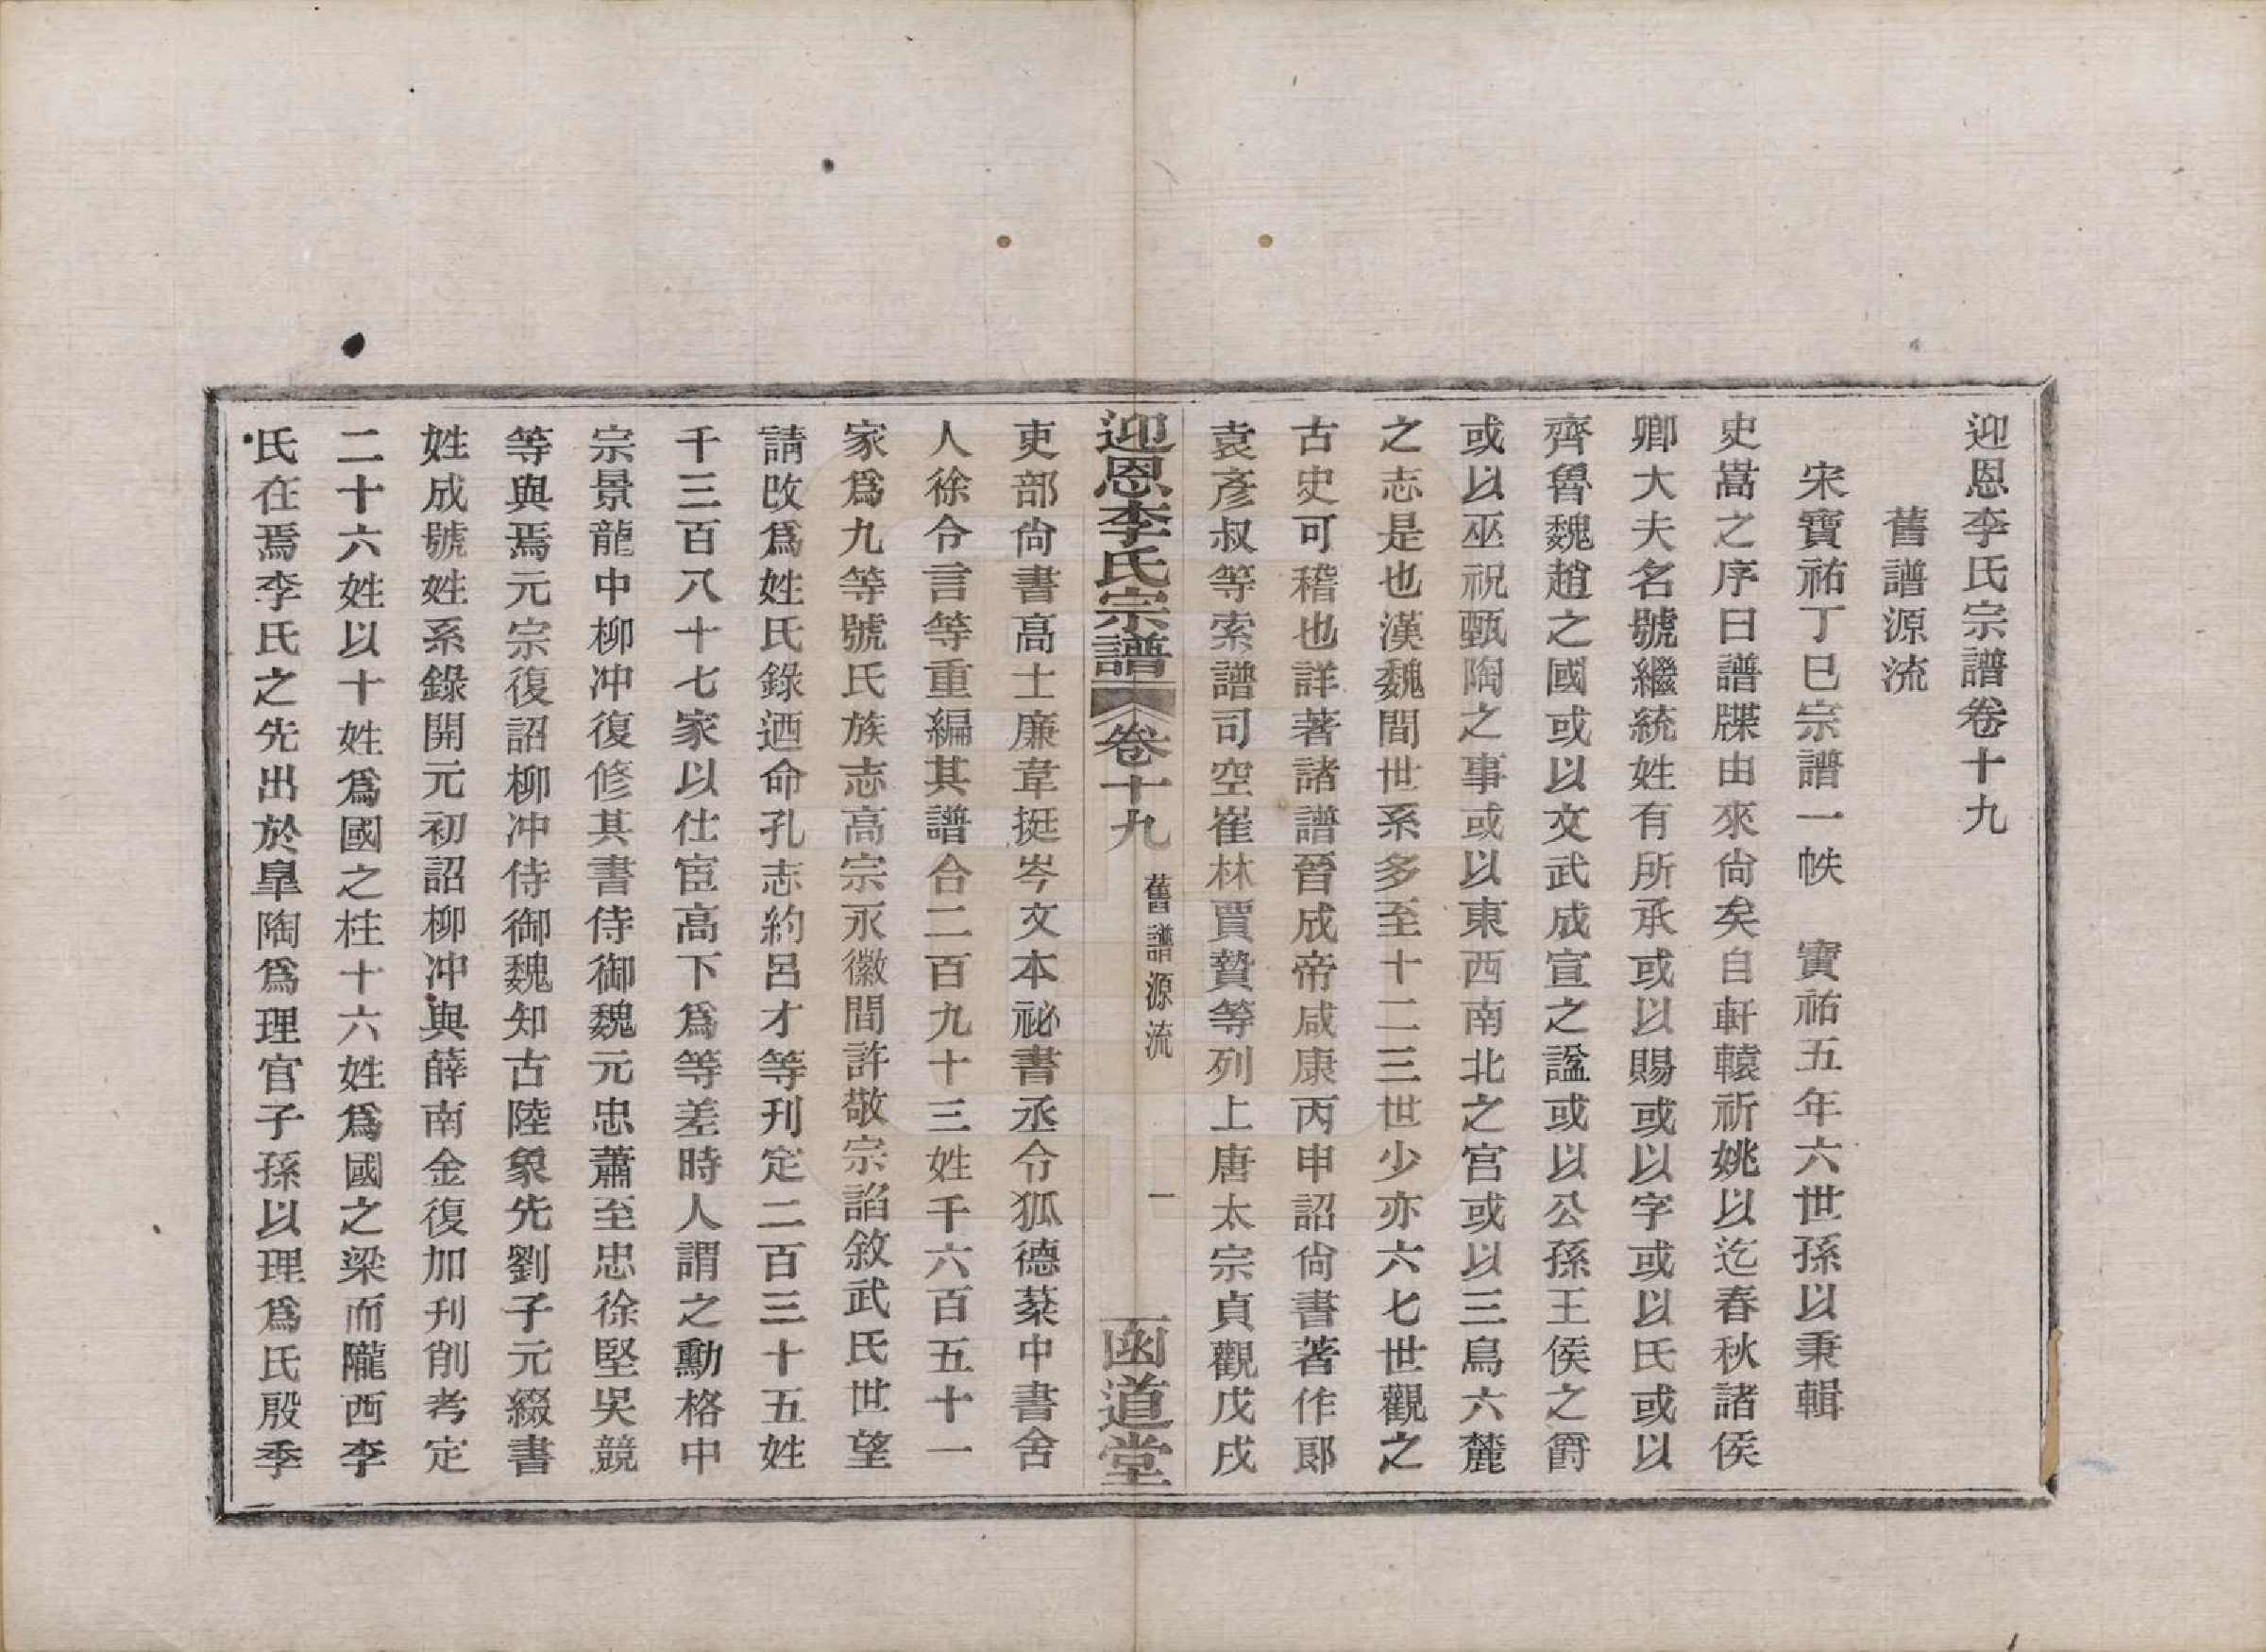 迎恩李氏宗譜卷十九
舊譜源流
宋寶祐丁巳宗譜一帙　寶祐五年六世孫以秉輯
史嵩之序曰譜牒由來尙矣自軒轅祈姚以迄春秋諸侯
卿大夫名號繼統姓有所承或以賜或以字或以氏或以
齊魯魏趙之國或以文武成宣之諡或以公孫王侯之爵
或以巫祝甄陶之事或以東西南北之宮或以三鳥六麓
之志是也漢魏間世系多至十二三世少亦六七世觀之
古史可稽也詳著諸譜晉成帝咸康丙申詔尙書著作郎
袁彥叔等索譜司空崔林賈贄等列上唐太宗貞觀戊戌
迎恩李氏宗譜 卷十九 舊譜源流 一 函道堂
吏部尙書高士廉韋挺岑文本祕書丞令狐德棻中書舍
人徐令言等重編其譜合二百九十三姓千六百五十一
家爲九等號氏族志高宗永徽間許敬宗諂敘武氏世望
請改爲姓氏錄迺命孔志約呂才等刊定二百三十五姓
千三百八十七家以仕宦高下爲等差時人謂之勳格中
宗景龍中柳冲復修其書侍御魏元忠蕭至忠徐堅吳競
等與焉元宗復詔柳冲侍御魏知古陸象先劉子元綴書
姓成號姓系錄開元初詔柳冲與薛南金復加刊削考定
二十六姓以十姓爲國之柱十六姓爲國之梁而隴西李
氏在焉李氏之先出於臯陶爲理官子孫以理爲氏殷季